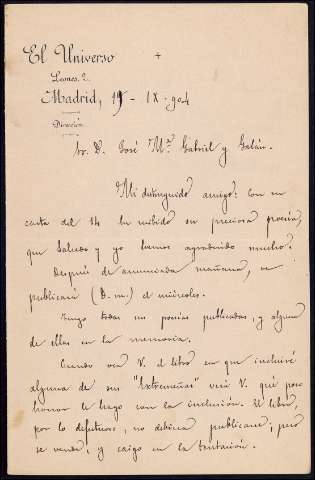 El Universo
+
Leones, 2.
Madrid, 19 - IX - 904
Dirección
Sr. D. José Mª. Gabriel y Galán.
Mi distinguido amigo: Con su
carta del 14 he recibido su preciosa poesía,
que Salcedo y yo hemos agradecido mucho.
Después de anunciada mañana, se
publicará (D. m.) el miércoles.
Tengo todas sus poesías publicadas, y alguna
de ellas en la memoria.
Cuando vea V. el libro en que incluiré
alguna de sus "Extremeñas" verá V. qué poco
honor le hago con la inclusión. El libro,
por lo defectuoso, no debiera publicarse; pero
se vende, y caigo en la tentación.